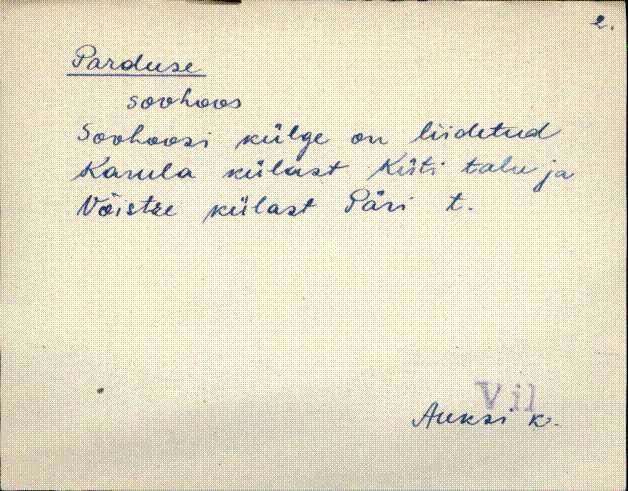 2.
Parduse
sovhoos
Sovhoosi külge on liidetud
Karula külast Küti talu ja
Võistre külast Päri t.
Vil
Auksi k.